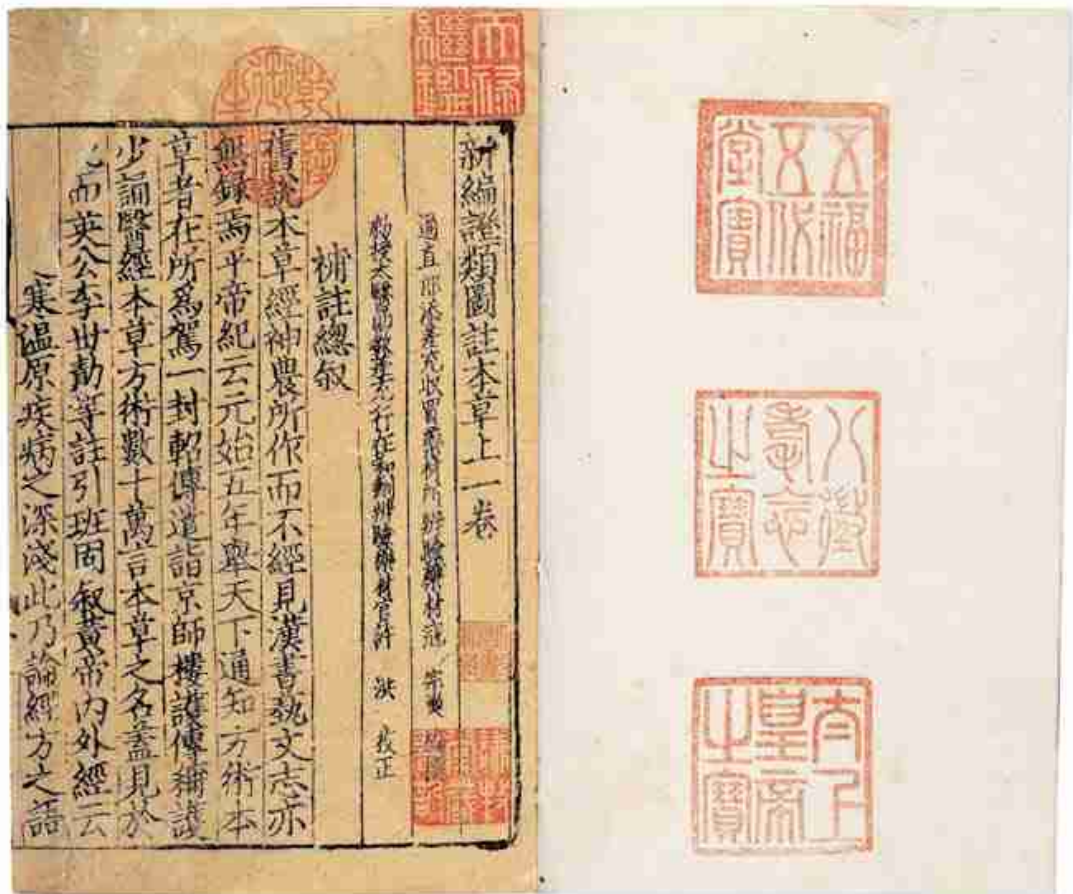 五福
五代
堂寶
八徵
耄念
之寶
太上
皇帝
之寶
天祿
繼鑑
乾隆
御覽
之寶
新編證類圖註本草上一卷
通直郎添差充收買藥材所辨驗藥材寇 宗奭 編撰
敕授太醫助教差充行在和劑辨驗藥材官許 洪 校正
補註總叙
舊說本草經神農所作而不經見漢書藝文志亦
無錄焉平帝紀云元始五年舉天下通知方術本
草者在所爲駕一封軺傳遣詣京師樓護傳稱護
少誦醫經本草方術數十萬言本草之名蓋見於
此而英公李世勣等註引班固叙黃帝內外經云
寒溫原疾病之深淺此乃論經方之語